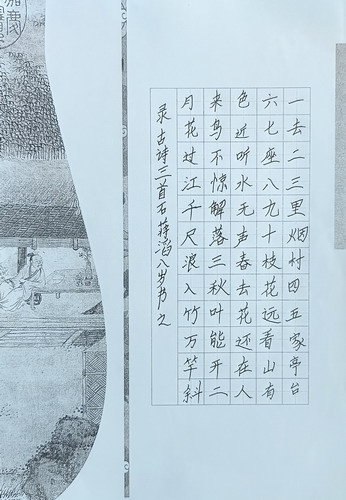 一去二三里烟村四五家亭台
六七座八九十枝花远看山有
色近听水无声春去花还在人
来鸟不惊解落三秋叶能开二
月花过江千尺浪入竹万竿斜
录古诗三首石滔八岁书之